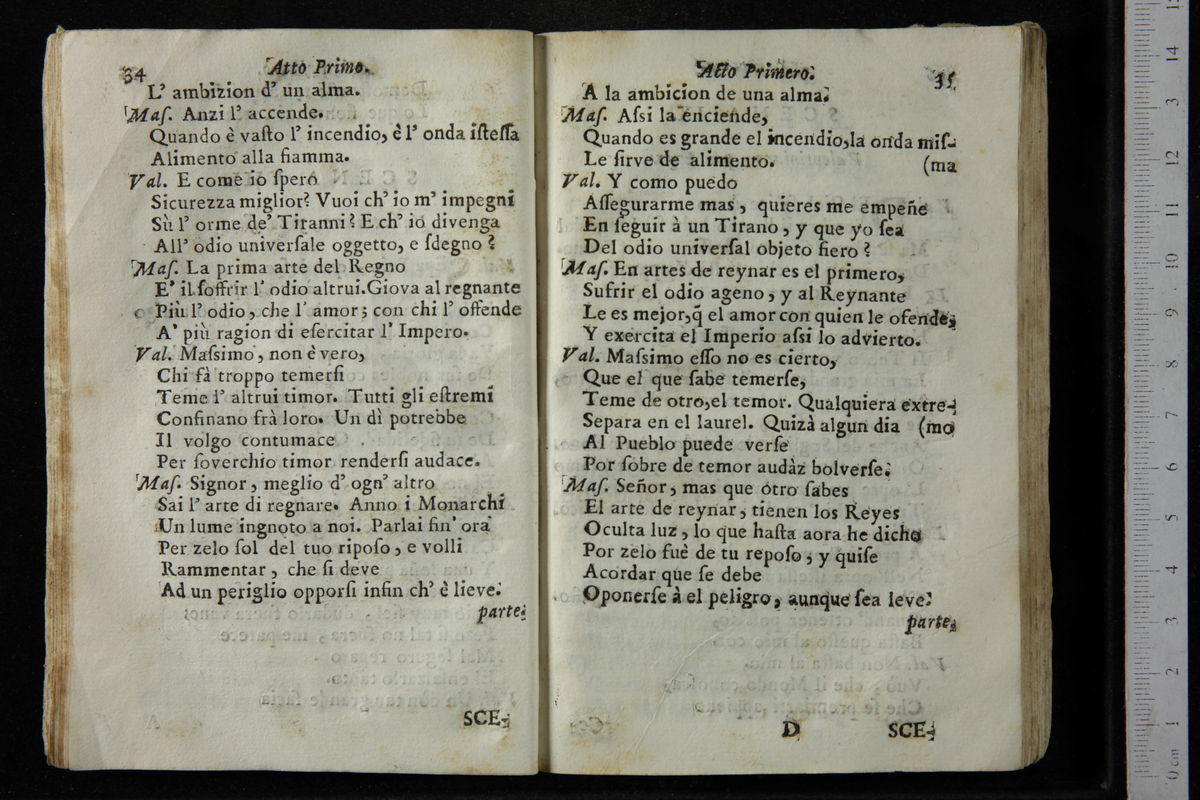 34
Atto Primo.
L' ambizion d' un alma.
Maſ. Anzi l' accende.
Quando è vaſto l' incendio, è l' onda iſteſſa
Alimento alla fiamma.
Val. E come io ſpero
Sicurezza miglior? Vuoi ch' io m' impegni
Sù l' orme de' Tiranni? E ch' io divenga
All' odio univerſale oggetto, e ſdegno?
Maſ. La prima arte del Regno
E' il ſoffrir l' odio altrui. Giova al regnante
Più l' odio, che l' amor; con chi l' offende
A' più ragion di eſercitar l' Impero.
Val. Maſsimo, non è vero,
Chi fà troppo temerſi
Teme l' altrui timor. Tutti gli eſtremi
Confinano frà loro. Un dì potrebbe
Il volgo contumace
Per ſoverchio timor renderſi audace.
Maſ. Signor, meglio d' ogn' altro
Sai l' arte di regnare. Anno i Monarchi
Un lume ingnoto a noi. Parlai fin' ora
Per zelo ſol del tuo ripoſo, e volli
Rammentar, che ſi deve
Ad un periglio opporſi infin ch' è lieve.
parte.
SCE-
Acto Primero.
35
A la ambicion de una alma.
Maſ. Aſsi la enciende,
Quando es grande el incendio, la onda miſ-
Le ſirve de alimento. (ma
Val. Y como puedo
Aſſegurarme mas, quieres me empeñe
En ſeguir à un Tirano, y que yo ſea
Del odio univerſal objeto fiero?
Maſ. En artes de reynar es el primero,
Sufrir el odio ageno, y al Reynante
Le es mejor, q̃ el amor con quien le ofende,
Y exercita el Imperio aſsi lo advierto.
Val. Maſsimo eſſo no es cierto,
Que el que ſabe temerſe,
Teme de otro, el temor. Qualquiera extre-
Separa en el laurel. Quizà algun dia (mo
Al Pueblo puede verſe
Por ſobre de temor audàz bolverſe.
Maſ. Señor, mas que otro ſabes
El arte de reynar, tienen los Reyes
Oculta luz, lo que haſta aora he dicho
Por zelo fuè de tu repoſo, y quiſe
Acordar que ſe debe
Oponerſe à el peligro, aunque ſea leve.
parte.
D
SCE-